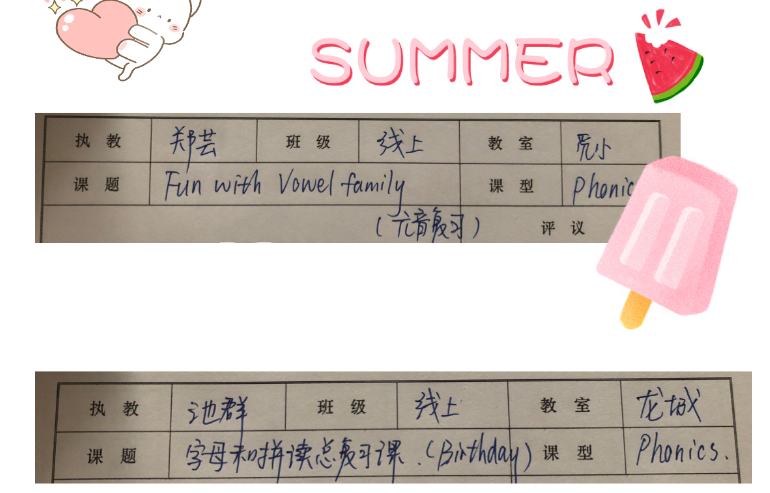 SUMMER
执教 郑芸 班级 线上 教室
课题 Fun with Vowel family 课型 Phonic
(元音复习) 评议
执教 池群 班级 线上 教室 龙城
课题 字母和拼读总复习课.(Birthday) 课型 Phonics.